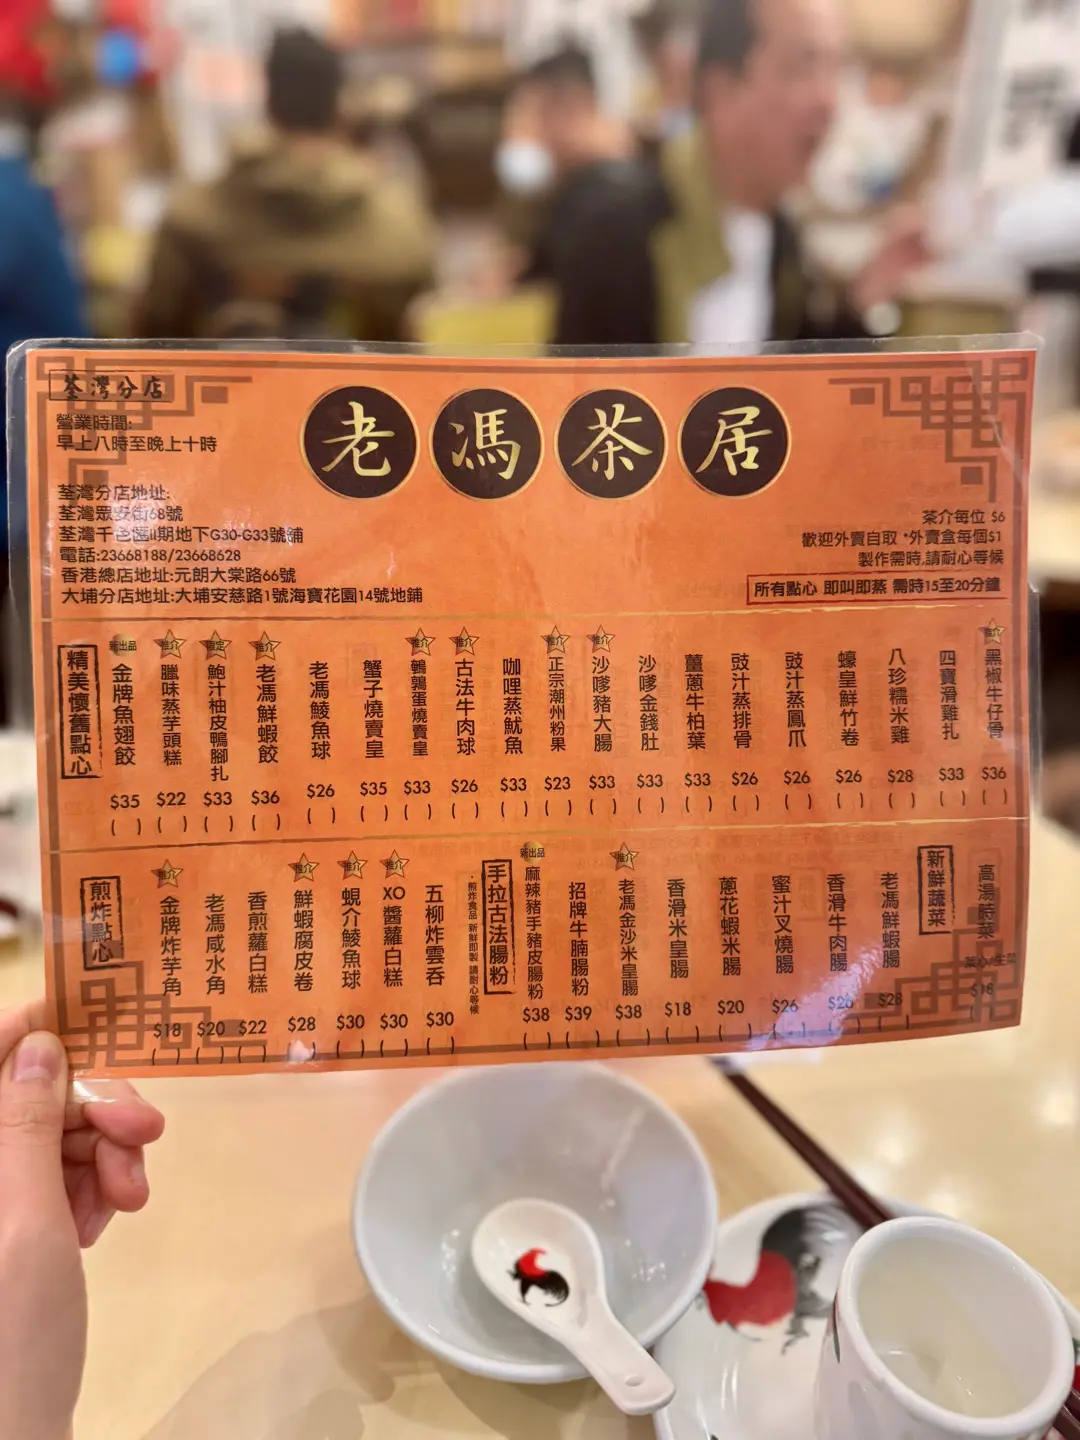 荃灣分店
營業時間:
早上八時至晚上十時
老馮茶居
荃灣分店地址:
荃灣眾安街68號
荃灣千色匯II期地下G30-G33號舖
電話:23668188/23668628
香港總店地址:元朗大棠路66號
大埔分店地址:大埔安慈路1號海寶花園14號地舖
茶介每位 $6
歡迎外賣自取 *外賣盒每個$1
製作需時,請耐心等候
所有點心 即叫即蒸 需時15至20分鐘
精美懷舊點心
新出品 金牌魚翅餃 $35 ( )
推介 臘味蒸芋頭糕 $22 ( )
鮑汁柚皮鴨腳扎 $33 ( )
推介 老馮鮮蝦餃 $36 ( )
老馮鯪魚球 $26 ( )
蟹子燒賣皇 $35 ( )
推介 鵪鶉蛋燒賣皇 $33 ( )
推介 古法牛肉球 $26 ( )
咖哩蒸魷魚 $33 ( )
推介 正宗潮州粉果 $23 ( )
推介 沙嗲豬大腸 $33 ( )
沙嗲金錢肚 $33 ( )
薑蔥牛柏葉 $33 ( )
豉汁蒸排骨 $26 ( )
豉汁蒸鳳爪 $26 ( )
蠔皇鮮竹卷 $26 ( )
八珍糯米雞 $28 ( )
四寶滑雞扎 $33 ( )
推介 黑椒牛仔骨 $36 ( )
煎炸點心
推介 金牌炸芋角 $18 ( )
老馮咸水角 $20 ( )
香煎蘿白糕 $22 ( )
推介 鮮蝦腐皮卷 $28 ( )
推介 蜆介鯪魚球 $30 ( )
推介 XO醬蘿白糕 $30 ( )
五柳炸雲吞 $30 ( )
·煎炸食品 新鮮即製 請耐心等候
手拉古法腸粉
新出品 麻辣豬手豬皮腸粉 $38 ( )
招牌牛腩腸粉 $39 ( )
推介 老馮金沙米皇腸 $38 ( )
香滑米皇腸 $18 ( )
蔥花蝦米腸 $20 ( )
蜜汁叉燒腸 $26 ( )
香滑牛肉腸 $26 ( )
老馮鮮蝦腸 $28 ( )
新鮮蔬菜
高湯時菜
菜心/生菜 $18 ( )